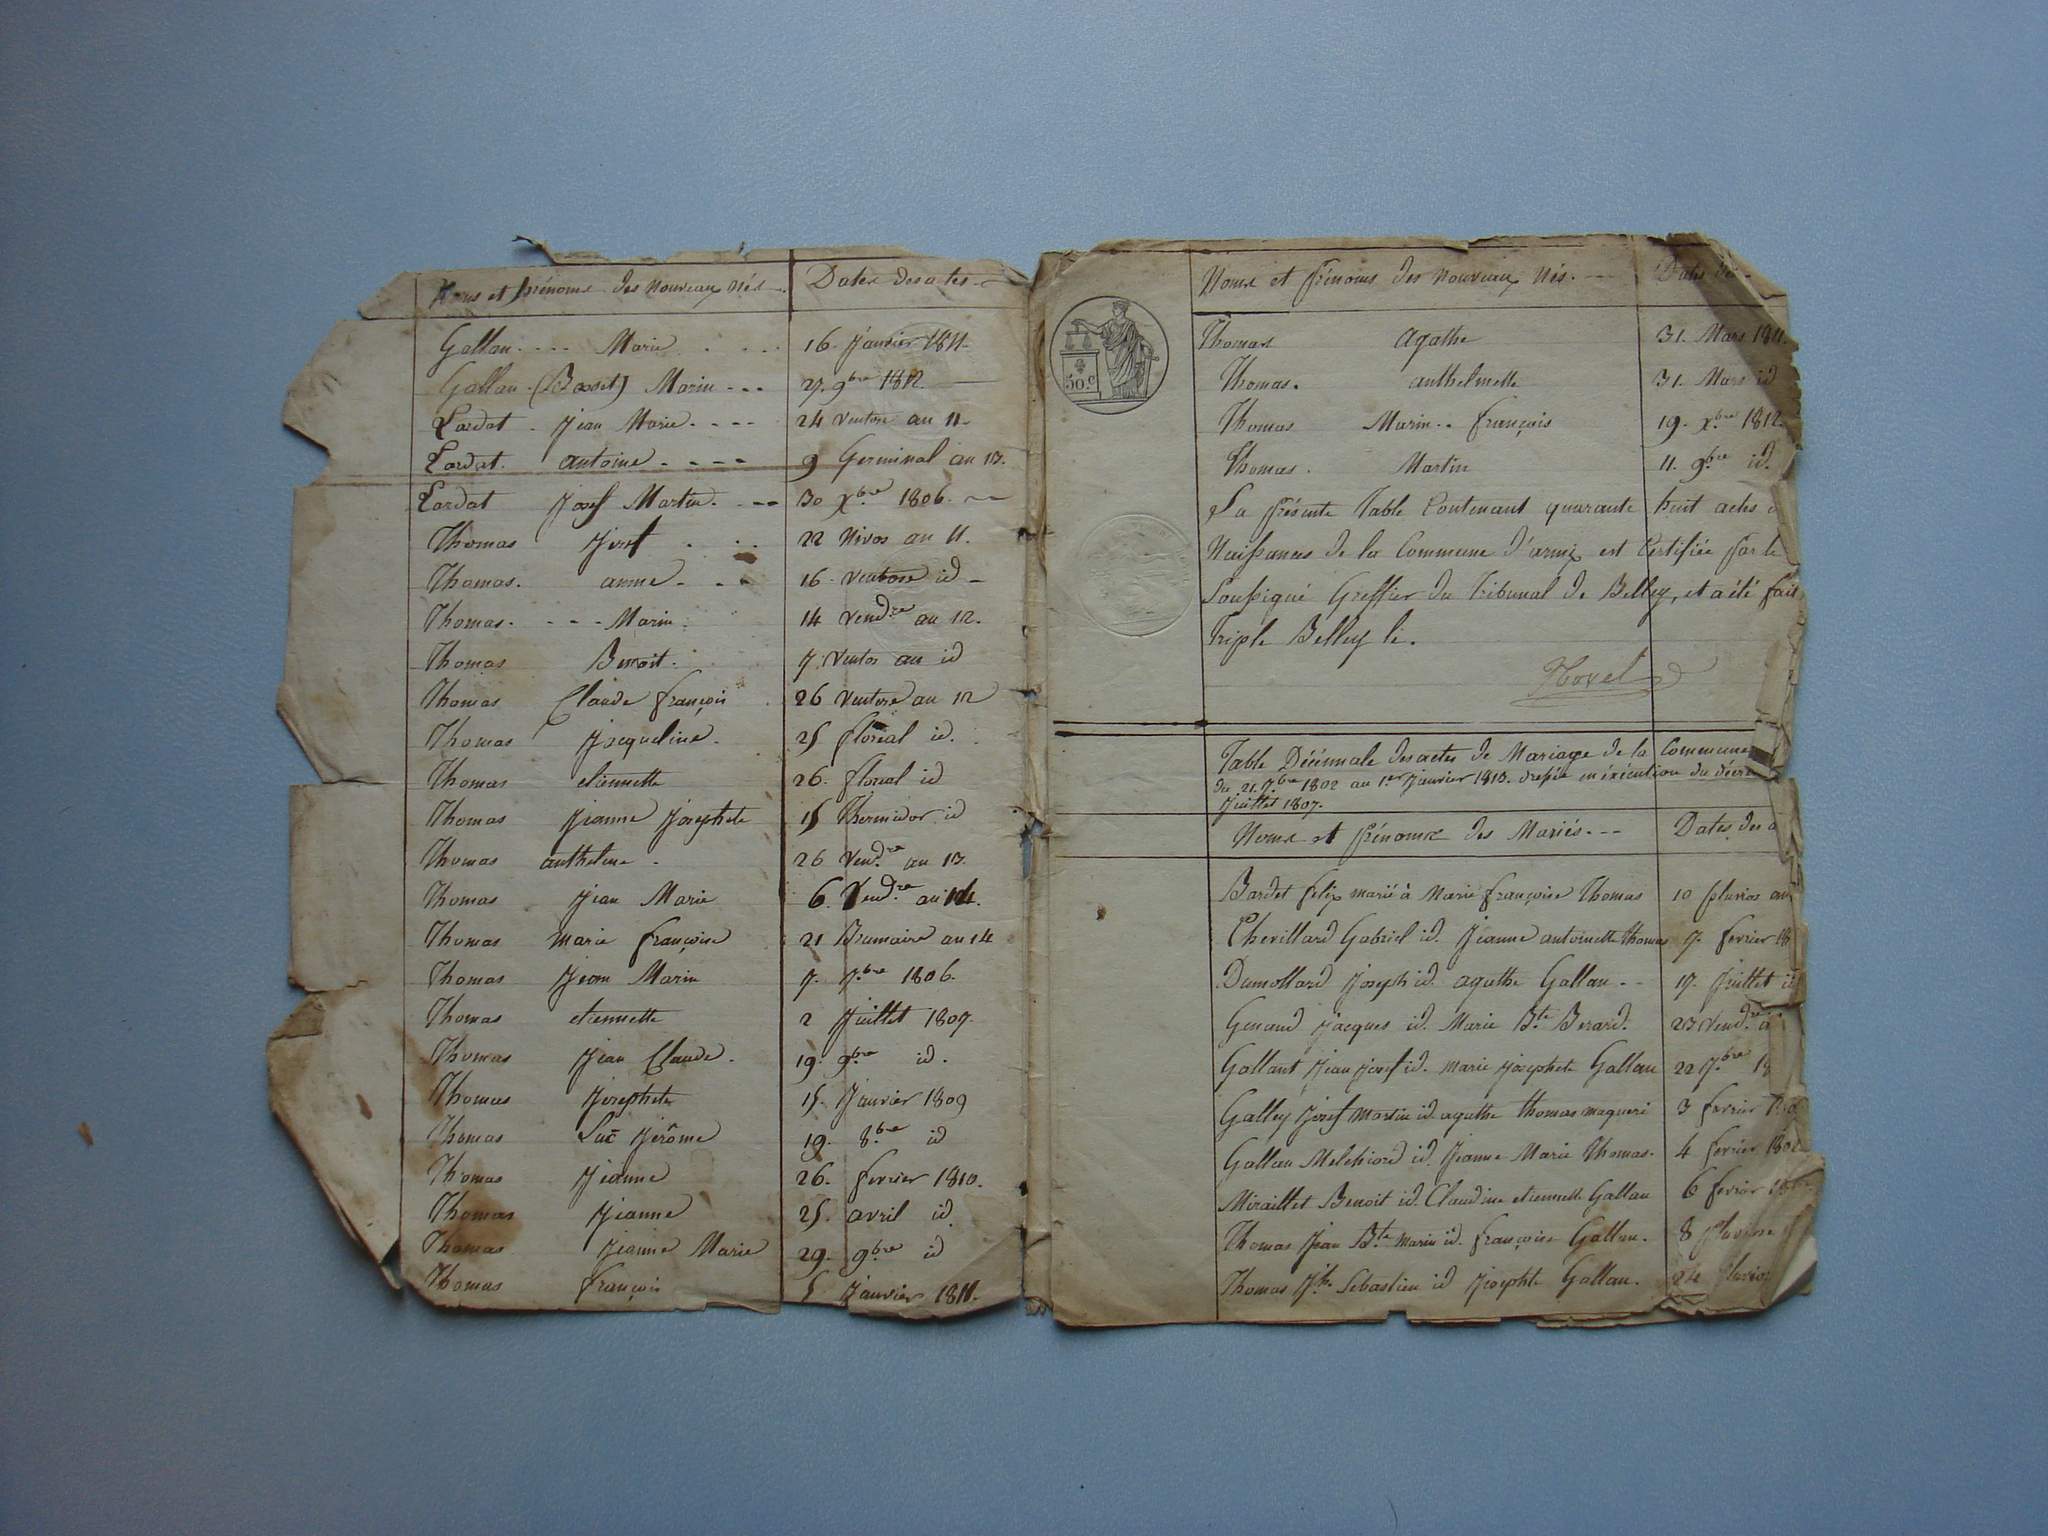 Noms et prénoms des nouveaux nés Dates des actes
Gallan Marie 16 Janvier 1811.
Gallan (Basset) Marin 27. 9bre 1812
Lardat Jean Marie 24 Ventose an 11
Lardat antoine 9 Germinal an 13.
Lardat Josef Martin 30 Xbre 1806.
Thomas Josef 22 Nivos an 11.
Thomas. anne 16. Ventose id
Thomas. Marin 14 Vendre an 12.
Thomas Benoit. 7. Ventos an id
Thomas Claude françois 26 Ventose an 12
Thomas Jacqueline. 25 floréal id.
Thomas etiennette 26. floreal id
Thomas Jeanne Josephete 15 Thermidor id
Thomas anthelme 26 Vendre an 13.
Thomas Jean Marie 6. Vendre an 14.
Thomas marie françoise 21 Brumaire an 14
Thomas Jean Marin 7. 7bre 1806.
Thomas etiennette 2 Juillet 1807.
Thomas Jean Claude. 19. 9bre id.
Thomas Josephete 15. Janvier 1809
Thomas Luc Jérôme 19. 8bre id
Thomas Jeanne 26. fevrier 1810.
Thomas Jeanne 25. avril id.
Thomas Jeanne Marie 29. 9bre id
Thomas françois 5 Janvier 1811.
Noms et Prénoms des Nouveaux Nés. Dates de
50.c
Thomas agathe 31. Mars 1811.
Thomas. anthelmette 31. Mars id
Thomas Marin françois 19. Xbre 1812.
Thomas. Martin 11. 9bre id.
La Présente Table Contenant quarante huit actes d
Naissances de la Commune d'armix est Certifiée par le
Soussigné Greffier du Tribunal de Belley, et a été fait
Triple Belley le.
Table Décennale des actes de Mariage de la Commune
du 21. 7bre 1802 au 1er Janvier 1813. dressée en éxécution du décre
Juillet 1807.
Noms et Prénoms des Mariés Dates des a
Bardet felix marié à Marie françoise Thomas 10 pluvios an
Chevillard Gabriel id. Jeanne antoinette Thomas 7. fevrier 18
Dumollard Joseph id. agathe Gallan 17. Juillet id
Genand Jacques id. Marie Bte Berard. 23 Vendre a
Gallant Jean Josef id. marie Josephete Gallan 22 7bre 18
Galley Josef Martin id. agathe thomas maqueri 3 fevrier
Gallan Melchiord id. Jeanne Marie Thomas. 4 fevrier 180
Miraillet Benoit id. Claudine etiennette Gallan 6 fevrier
Thomas Jean Bte Marin id. françoise Gallan. 8 pluviose
Thomas Jh Sebastien id Josephte Gallan. 24 pluvios